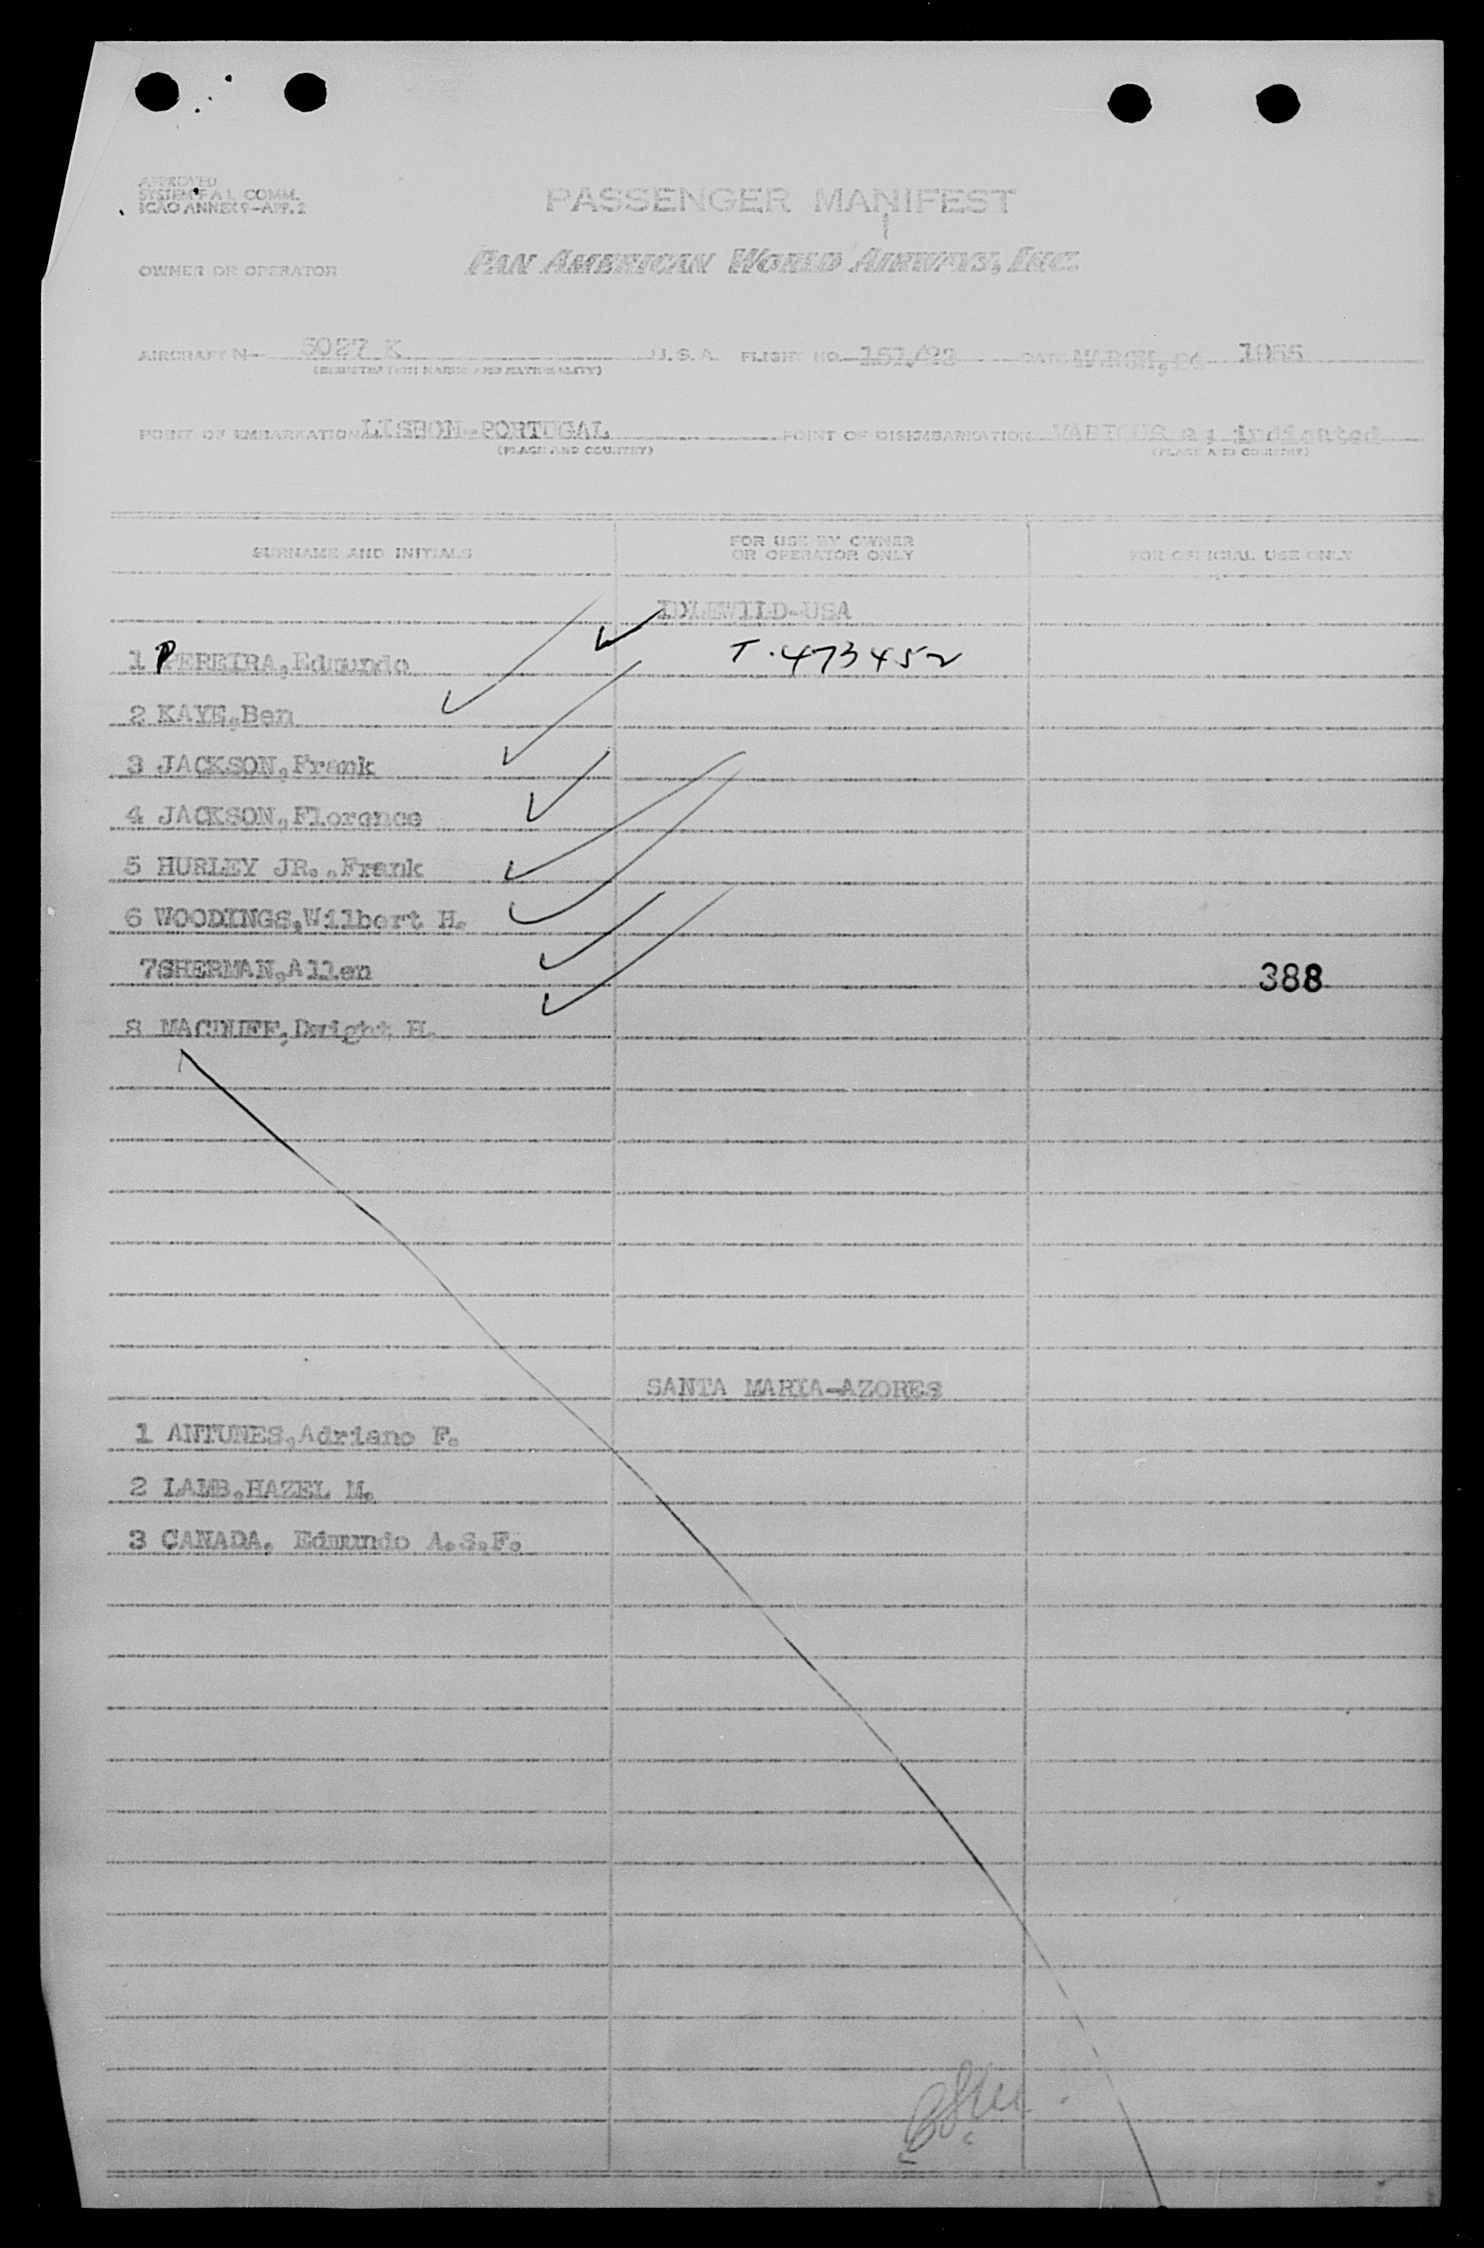 APPROVED
SYSTEM F A L COMM.
ICAO ANNEX 9-APP. 2
PASSENGER MANIFEST
OWNER OR OPERATOR PAN AMERICAN WORLD AIRWAYS, INC.
AIRCRAFT N- 5027 K U. S. A. FLIGHT NO. 151/22 DATE MARCH, 1955
(REGISTRATION MARKS AND NATIONALITY)
POINT OF EMBARKATION LISBON-PORTUGAL POINT OF DISEMBARKATION VARIOUS as indicated
(PLACE AND COUNTRY) (PLACE AND COUNTRY)
SURNAME AND INITIALS FOR USE BY OWNER OR OPERATOR ONLY FOR OFFICIAL USE ONLY
IDLEWILD-USA
1 PEREIRA, Edmundo T.473452
2 KAYE, Ben
3 JACKSON, Frank
4 JACKSON, Florence
5 HURLEY JR., Frank
6 WOODINGS, Wilbert H.
7 SHERMAN, Allen 388
8 MACDUFF, Dwight H.
SANTA MARIA-AZORES
1 ANTUNES, Adriano F.
2 LAMB, HAZEL M.
3 CANADA, Edmundo A.S.F.